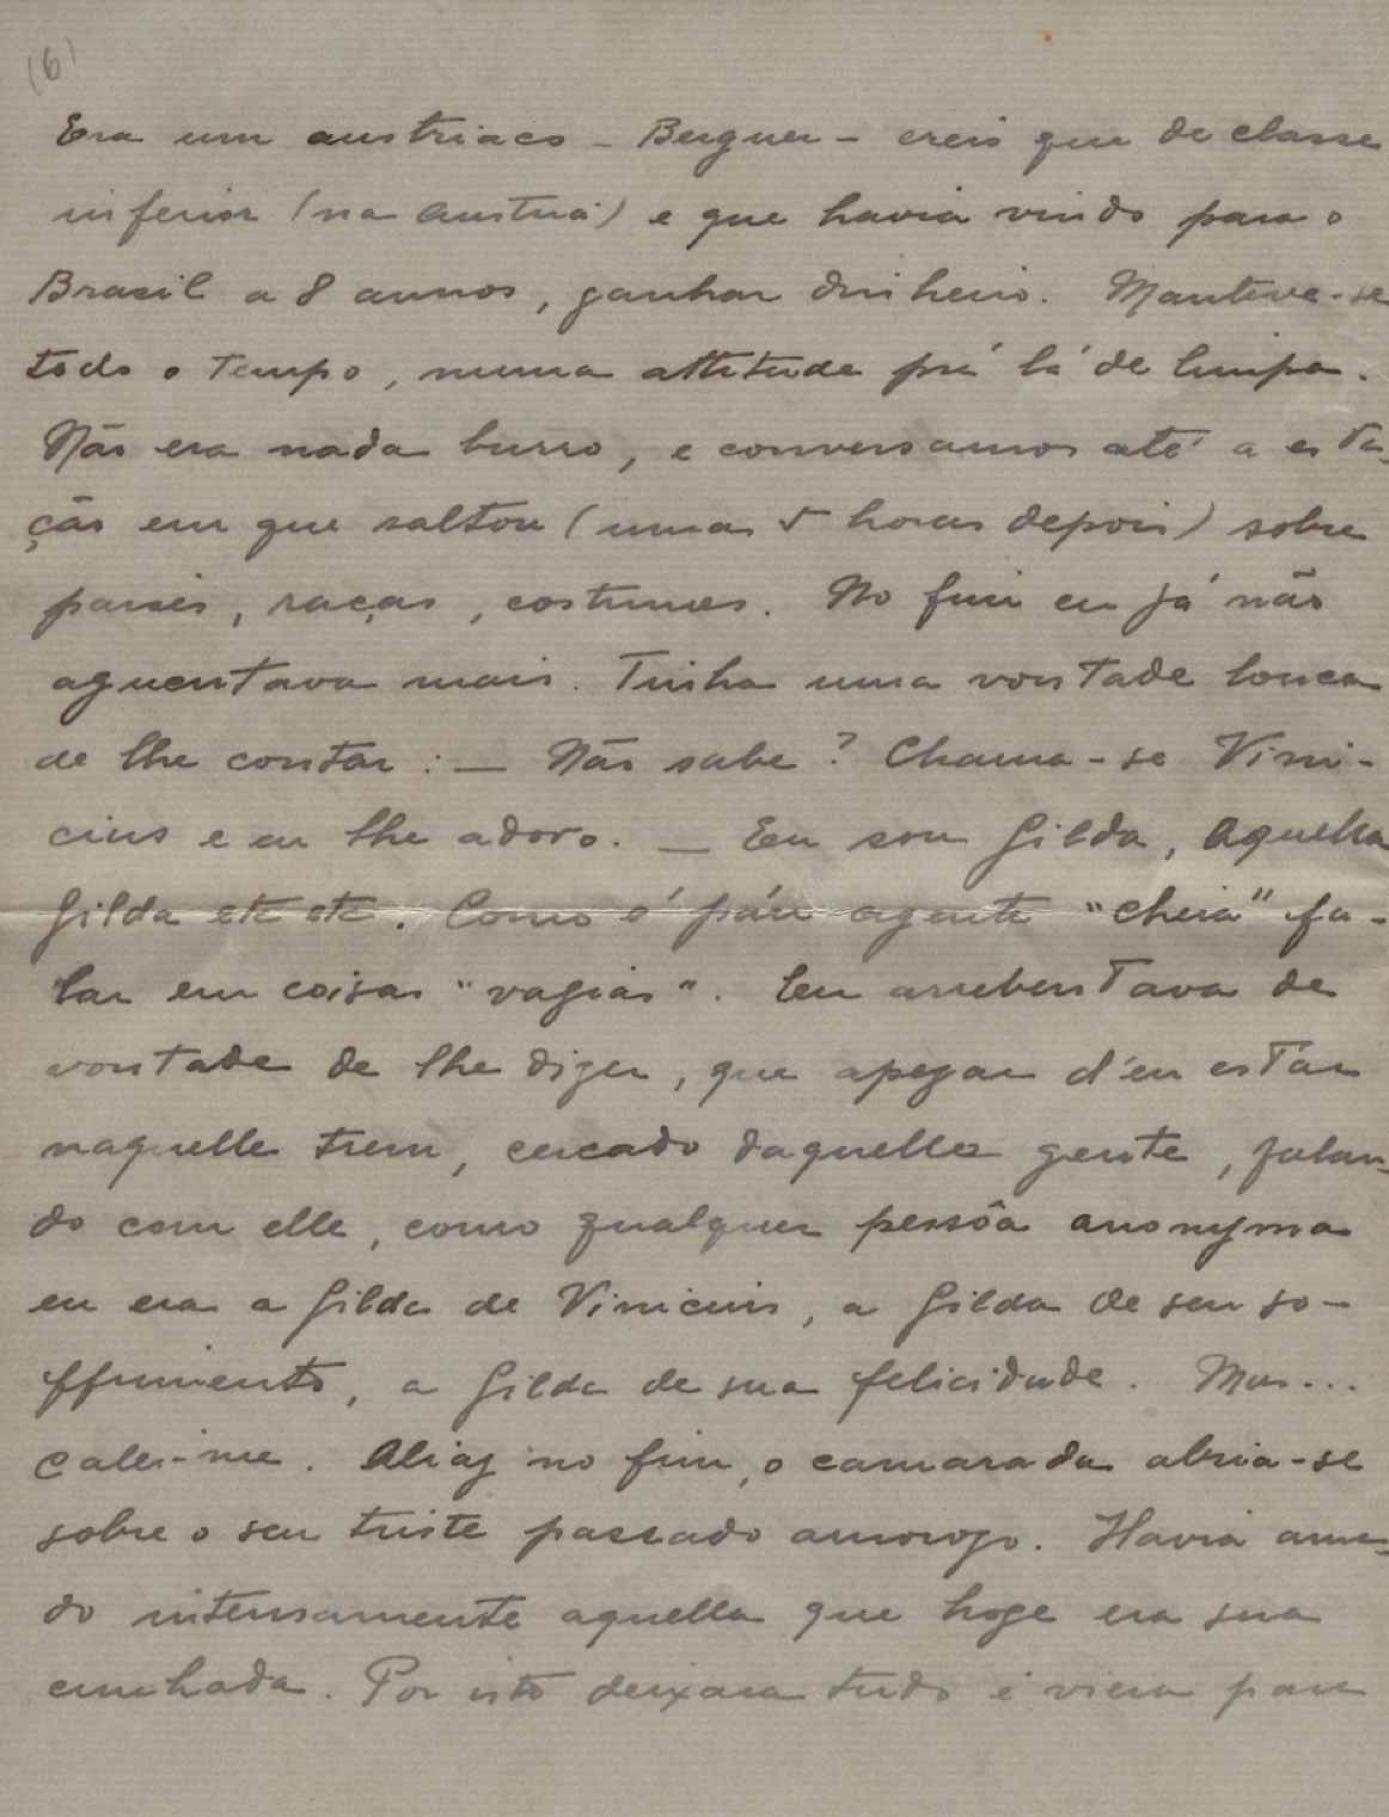 (6)
Era um austriaco – Berguer – creio que de classe
inferior (na Austria) e que havia vindo para o
Brasil a 8 annos, ganhar dinheiro. Manteve-se
todo o tempo, numa attitude prá lá de limpa.
Não era nada burro, e conversamos até a esta-
ção em que saltou (umas 5 horas depois) sobre
paises, raças, costumes. No fim eu já não
aguentava mais. Tinha uma vontade louca
de lhe contar: — Não sabe? Chama-se Vini-
cius e eu lhe adoro. — Eu sou Gilda, Aquella
Gilda etc etc. Como é páu agente "cheia" fa-
lar em coisas "vasias". Eu arrebentava de
vontade de lhe dizer, que apezar d'eu estar
naquelle trem, cercado daquella gente, falan-
do com elle, como qualquer pessôa anonyma
eu era a Gilda de Vinicius, a Gilda de seu so-
ffrimento, a Gilda de sua felicidade. Mas...
calei-me. Aliaz no fim, o camarada abria-se
sobre o seu triste passado amorozo. Havia ama-
do intensamente aquella que hoge era sua
cunhada. Por isto deixara tudo e viera para